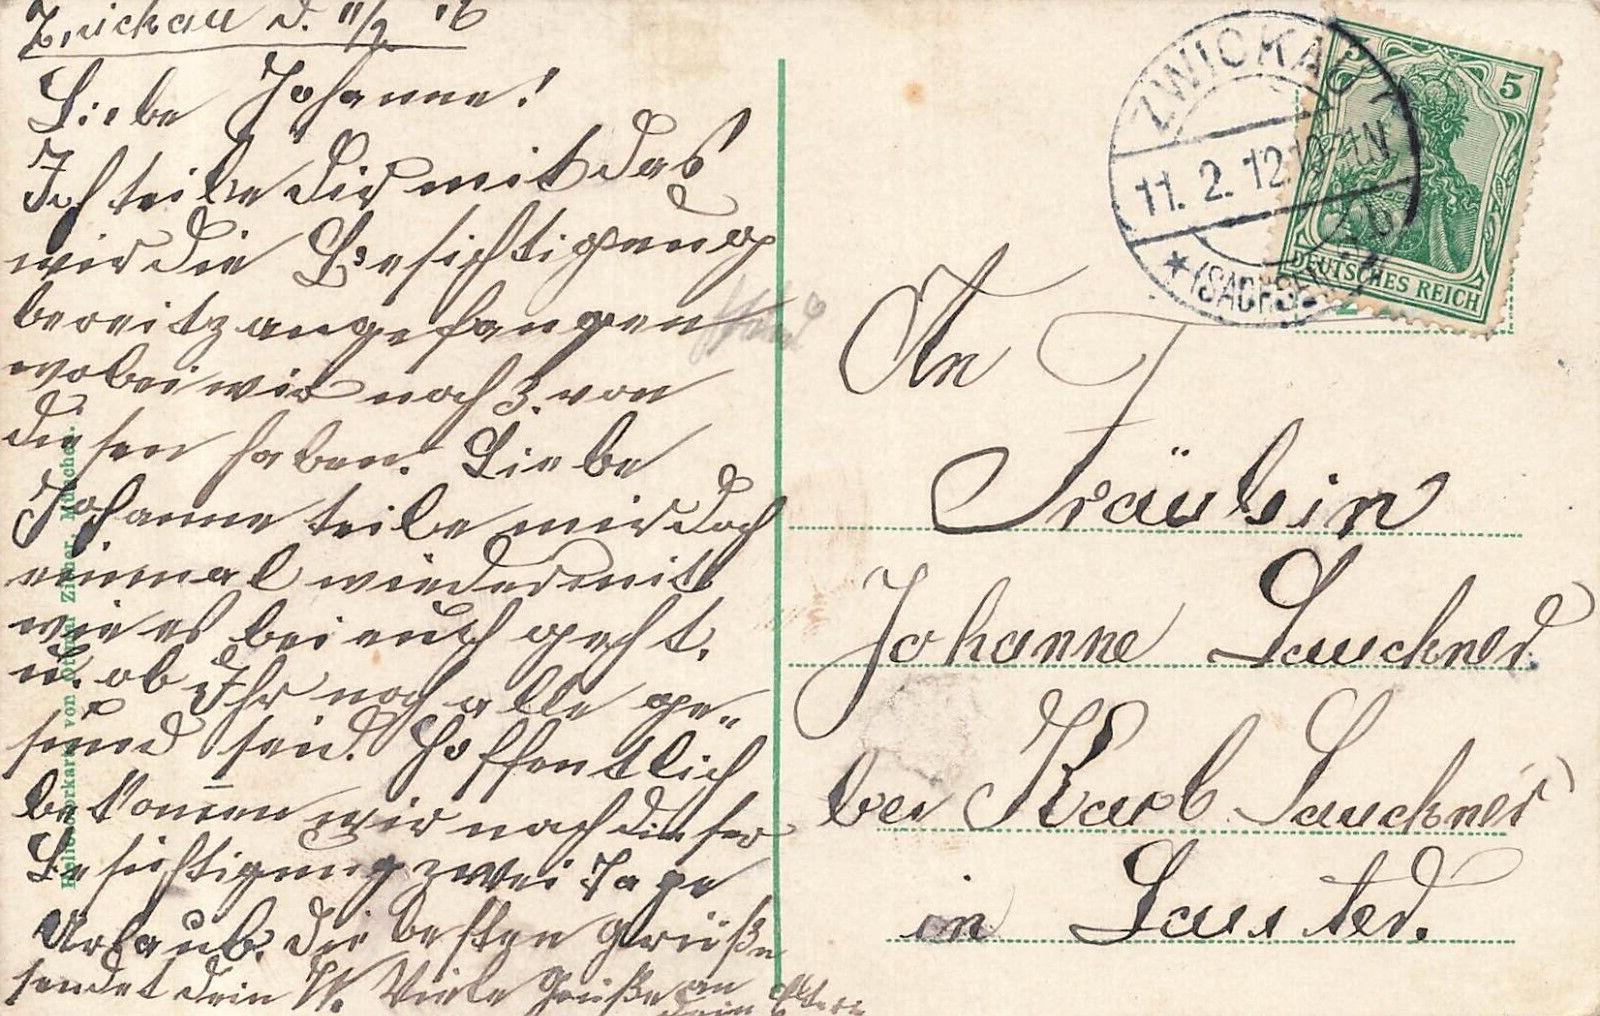 Zwickau d. 11/2 12
Liebe Johanne!
Ich teile Dir mit das
wir die Besichtigung
bereitz angefangen
wobei wir noch 3. von
diesen haben. Liebe
Johanne teile mir doch
einmal wieder mit
wie es bei euch geht.
u. ob Ihr noch alle ge-
sund seid. Hoffentlich
bekommen wir nach dieser
Besichtigung zwei Tage
Urlaub. Die besten Grüße
sendet dein W. Viele Grüße an
dein Eltern
Heliocolorkarte von Ottmar Zieher, München.
ZWICKAU
11. 2. 12. 10-11.N
* (SACHSEN) b
5 5
DEUTSCHES REICH
An
Fräulein
Johanne Lauckner
bei Karl Lauckner
in